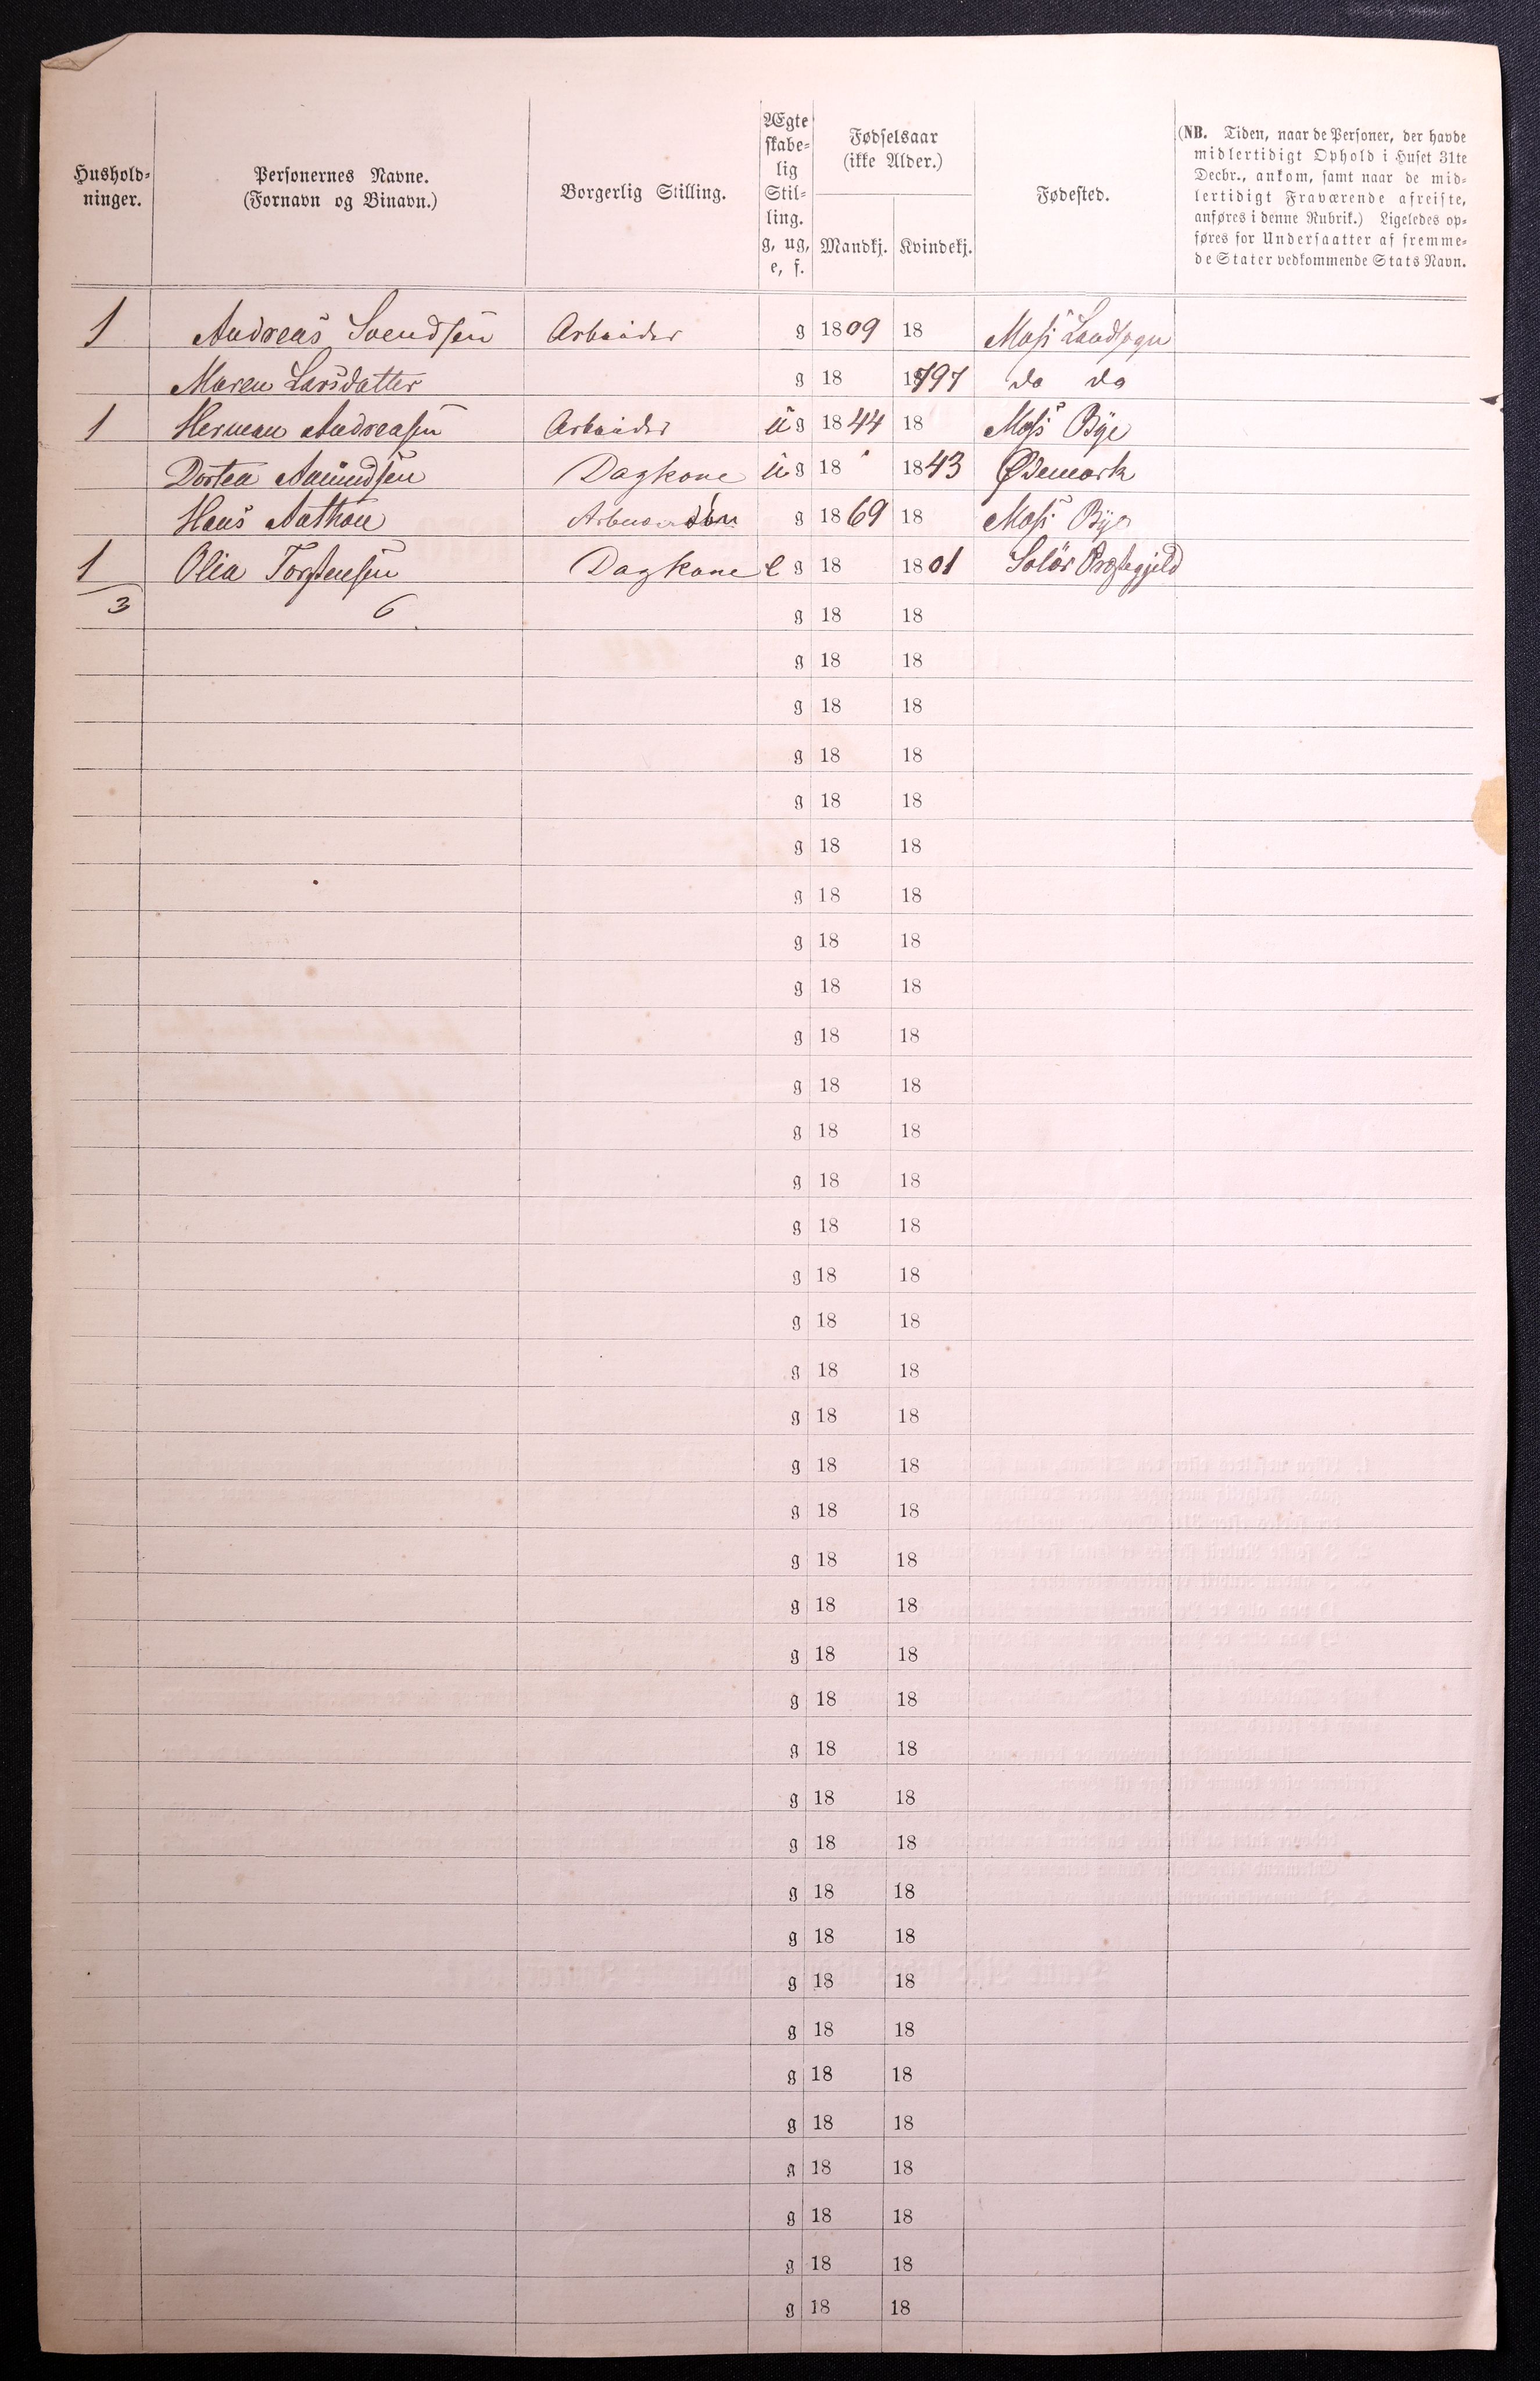 Hushold-
ninger.
Personernes Navne.
(Fornavn og Binavn.)
Borgerlig Stilling.
Ægte
skabe-
lig
Stil-
ling.
g, ug,
e, f.
Fødselsaar
(ikke Alder.)
Mandkj. Kvindekj.
Fødested.
(NB. Tiden, naar de Personer, der havde
midlertidigt Ophold i Huset 31te
Decbr., ankom, samt naar de mid-
lertidigt Fraværende afreiste,
anføres i denne Rubrik.) Ligeledes op-
føres for Undersaatter af fremme-
de Stater vedkommende Stats Navn.
1 Andreas Svendsen Arbeider g 1809 18 Moss Landsogn
Maren Larsdatter g 18 1797 do do
1 Herman Andreasen Arbeider ug 1844 18 Moss Bye
Dortea Amundsen Dagkone ug 18 1843 Ødemark
Hans Anthon søn g 1869 18 Moss Bye
1 Olia Torstensen Dagkone e g 18 1801 Solör Præstegjeld
3 6 g 18 18
g 18 18
g 18 18
g 18 18
g 18 18
g 18 18
g 18 18
g 18 18
g 18 18
g 18 18
g 18 18
g 18 18
g 18 18
g 18 18
g 18 18
g 18 18
g 18 18
g 18 18
g 18 18
g 18 18
g 18 18
g 18 18
g 18 18
g 18 18
g 18 18
g 18 18
g 18 18
g 18 18
g 18 18
g 18 18
g 18 18
g 18 18
g 18 18
g 18 18
g 18 18
g 18 18
g 18 18